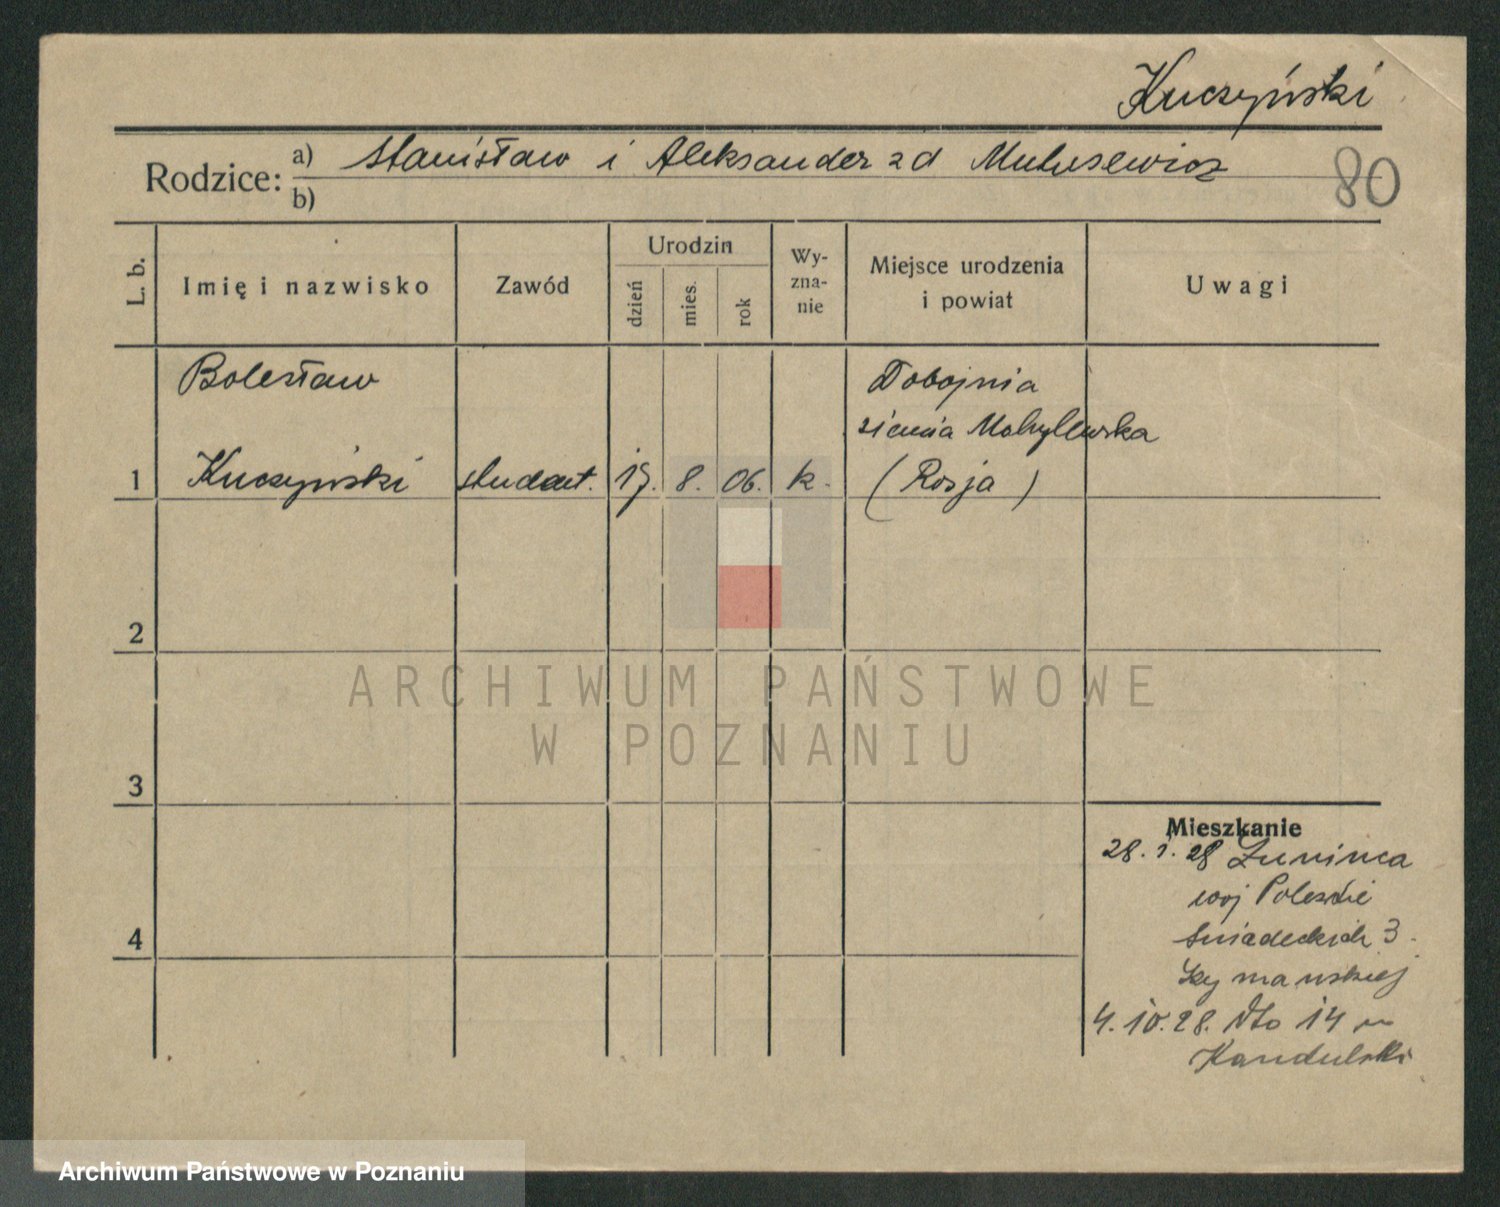 Kuczyński
Rodzice: a) Stanisław i Aleksander zd Mutusewicz
b)
80
L. b.
Imię i nazwisko
Zawód
Urodzin
dzień
mies.
rok
Wy-
zna-
nie
Miejsce urodzenia
i powiat
Uwagi
Bolesław
Dobojnia
ziemia Mohylewska
1 Kuczyński student. 19. 8. 06. k. (Rosja)
2
ARCHIWUM PAŃSTWOWE
W POZNANIU
3
Mieszkanie
28. 1. 28 Łuninca
woj Poleskie
4
Śniadeckich 3.
Szymańskiej
4. 10. 28. dto 14
Kandulski
Archiwum Państwowe w Poznaniu